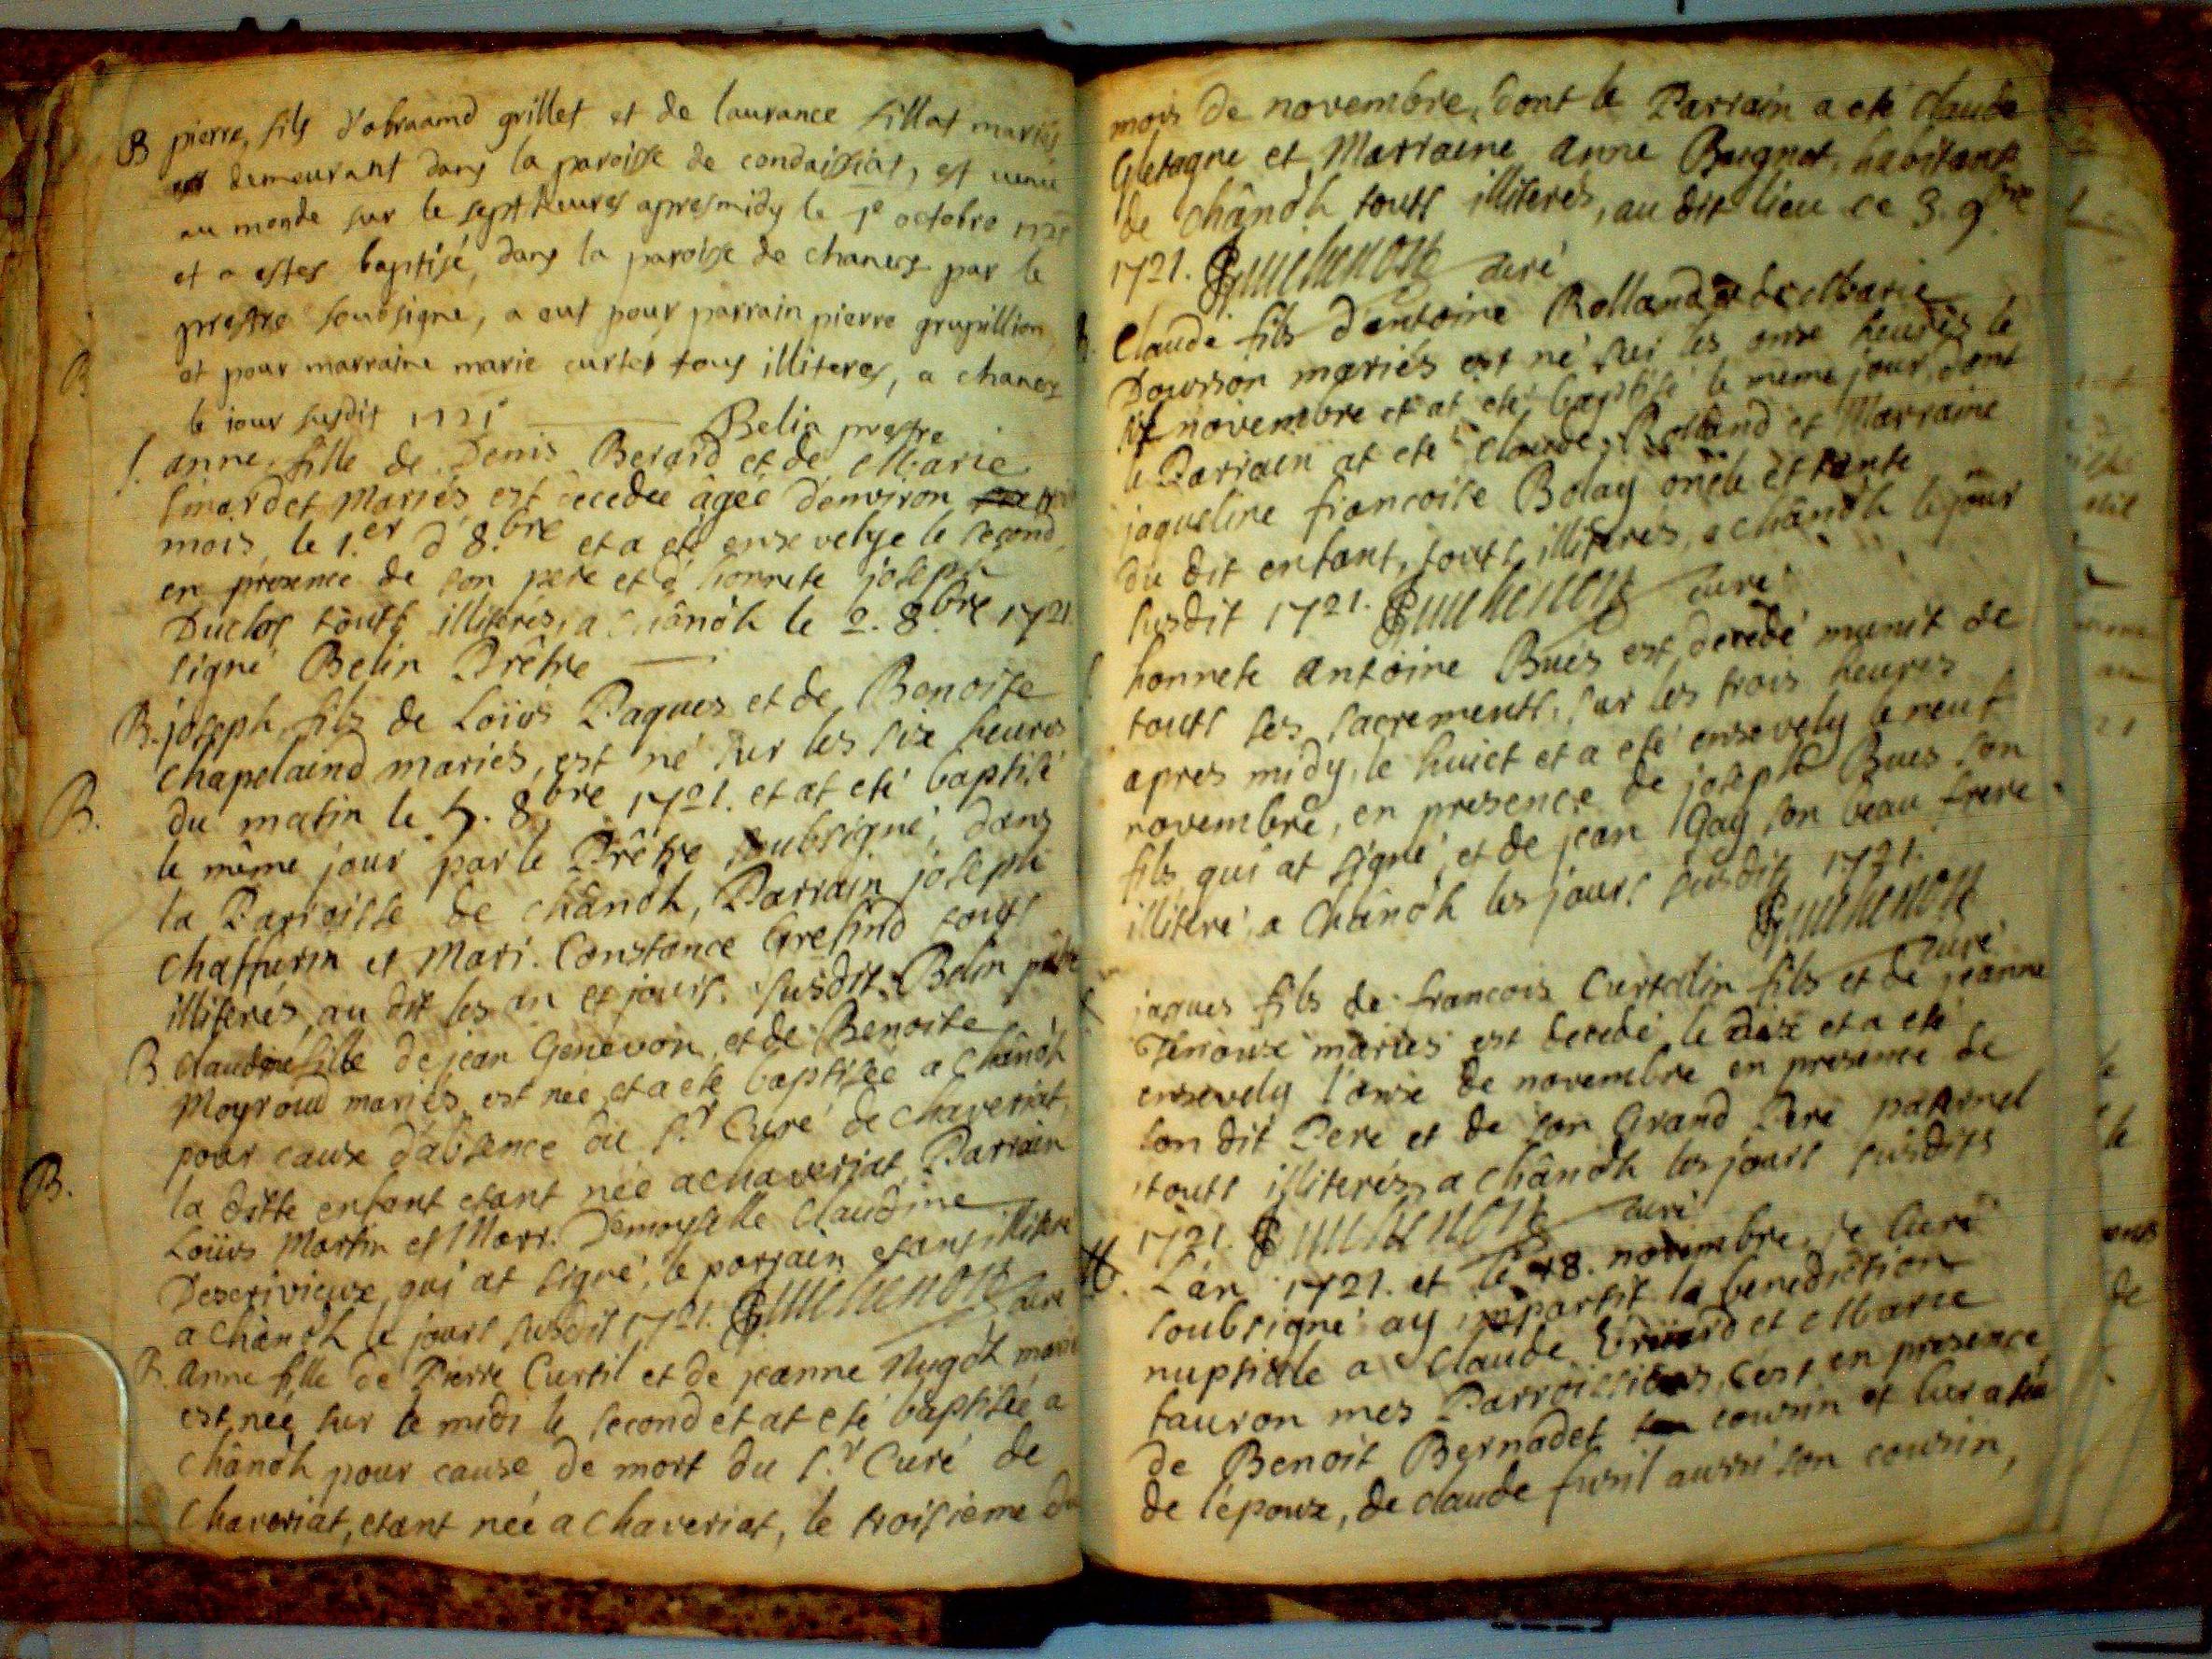 B pierre, fils d'abraamd grillet et de laurance fillat mariés
demeurant dans la paroisse de condaissiat, est venu
au monde sur le sept heures apresmidy le 1e octobre 1721
et a estes baptisé, dans la paroisse de chanos par le
prestre sousigne, a eut pour parrain pierre grupillion
B et pour marraine marie curtet tous illiteres, a chanos
le iour susdit 1721 Belin prestre
S. anne fille de Denis Berard et de Marie
mariés est decedée âgée d'environ
mois, le 1.er d'8.bre et a eté ensevelye le second
en presence de son pere et d'honnete joseph
Duclos touts illiteres, a Chânoh le 2. 8.bre 1721
signé Belin Prêtre
B. joseph fils de Loüis Paques et de Benoite
Chapelaind mariés, est né sur les six heures
B. du matin le 4. 8.bre 1721. et at eté baptisé
le même jour par le Prêtre soubsigné, dans
la Parroisse de chânoh, Parrain joseph
Chaffurin et Mari. Constance Grefind touts
illiterés, au dit les an et jours susdit. Belin prêtre
B. claudine fille de jean Genevon, et de Benoite
Moyroud mariés, est née et a eté baptisée a Chânoh
pour cause d'absence du S.r Curé de chaveriat,
B. la ditte enfant etant née a chaveriat, Parrain
Loüis Martin et Marr. Demoyselle Claudine
Descrivieux, qui at signé, le parrain etant illitere
a chânoh le jours susdit 1721. Guichenon curé
B. Anne fille de Pierre Curtil et de jeanne Nugoh mariés
est née sur le midi le second et at eté baptisée a
Chânoh pour cause de mort du S.r Curé de
Chaveriat, etant née a chaveriat, le troisieme du
mois de novembre, dont le Parrain a eté claude
Gletagne et Marraine Anne Bugnot, habitants
de chânoh touts illiterés, au dit lieu ce 3. 9.bre
1721. Guichenon curé
B. Claude fils d'antoine Rolland et de Marie
Dousson mariés est né sur les onse heures le
novembre et at eté baptisé le meme jour, dont
le Parrain at eté claude Rolland et Marraine
jaqueline francoise Bolay oncle et tante
du dit enfant, touts illiterés, a chânoh le jour
susdit 1721. Guichenon curé
S honnete Antoine Bues est decedé munit de
touts ses sacrements, sur les trois heures
apres midy, le huict et a eté ensevely le neuf
novembre, en presence de joseph Bues son
fils qui at signé, et de jean Gay son beau frere
illiteré, a Chânoh les jours susdits 1721.
Guichenon
curé
S jaques fils de francois Curtalin fils et de jeanne
mariés est decedé le dix et a eté
ensevely l'onse de novembre en presence de
son dit Pere et de son Grand Pere paternel
touts illiterés, a chânoh les jours susdits
1721. Guichenon curé
M. L'an 1721. et le 18. novembre, je Curé
soubsigné ay impartit la benediction
nuptialle a Claude et Marie
tauron mes Parroissiens, c'est en presence
de Benoit Bernadet cousin et curateur
de l'épouse, de claude fusil aussi son cousin,